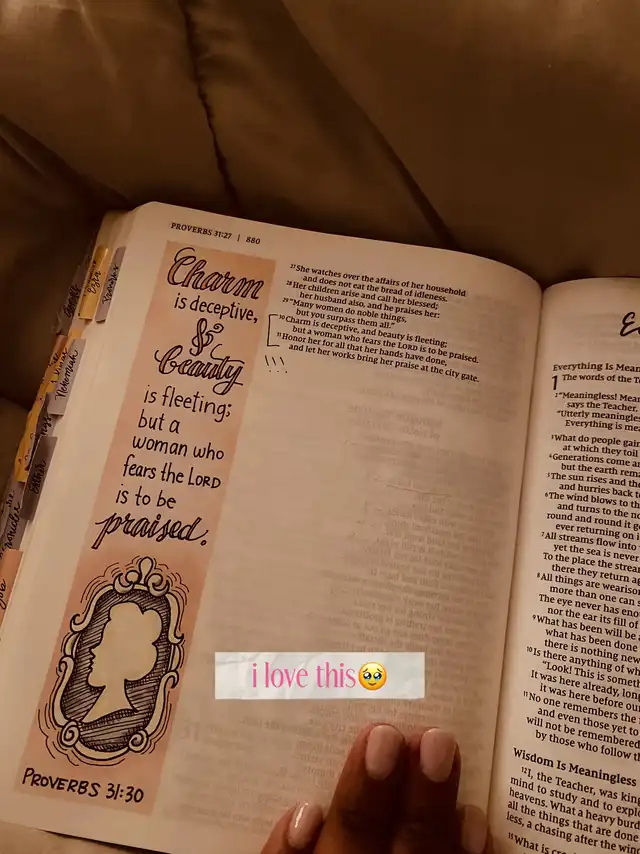 PROVERBS 31:27 | 880
Charm
is deceptive,
&
beauty
is fleeting;
but a
woman who
fears the LORD
is to be
praised.
PROVERBS 31:30
27 She watches over the affairs of her household
and does not eat the bread of idleness.
28 Her children arise and call her blessed;
her husband also, and he praises her:
29 "Many women do noble things,
but you surpass them all."
30 Charm is deceptive, and beauty is fleeting;
but a woman who fears the LORD is to be praised.
31 Honor her for all that her hands have done,
and let her works bring her praise at the city gate.
i love this🥹
Everything Is Mean
1 The words of the T
2 "Meaningless! Mean
says the Teacher.
"Utterly meaningles
Everything is mea
3 What do people gain
at which they toil
4 Generations come a
but the earth rema
5 The sun rises and the
and hurries back t
6 The wind blows to th
and turns to the no
round and round it g
ever returning on i
7 All streams flow into
yet the sea is never
To the place the strea
there they return ag
8 All things are wearisom
more than one can
The eye never has eno
nor the ear its fill of
9 What has been will be
what has been done
there is nothing new
10 Is there anything of wh
"Look! This is someth
It was here already, long
it was here before our
11 No one remembers the
and even those yet to
will not be remembered
by those who follow th
Wisdom Is Meaningless
12 I, the Teacher, was king
mind to study and to explo
heavens. What a heavy burd
all the things that are done
less, a chasing after the win
15 What is
Ezra
Nehemiah
Esther
Job